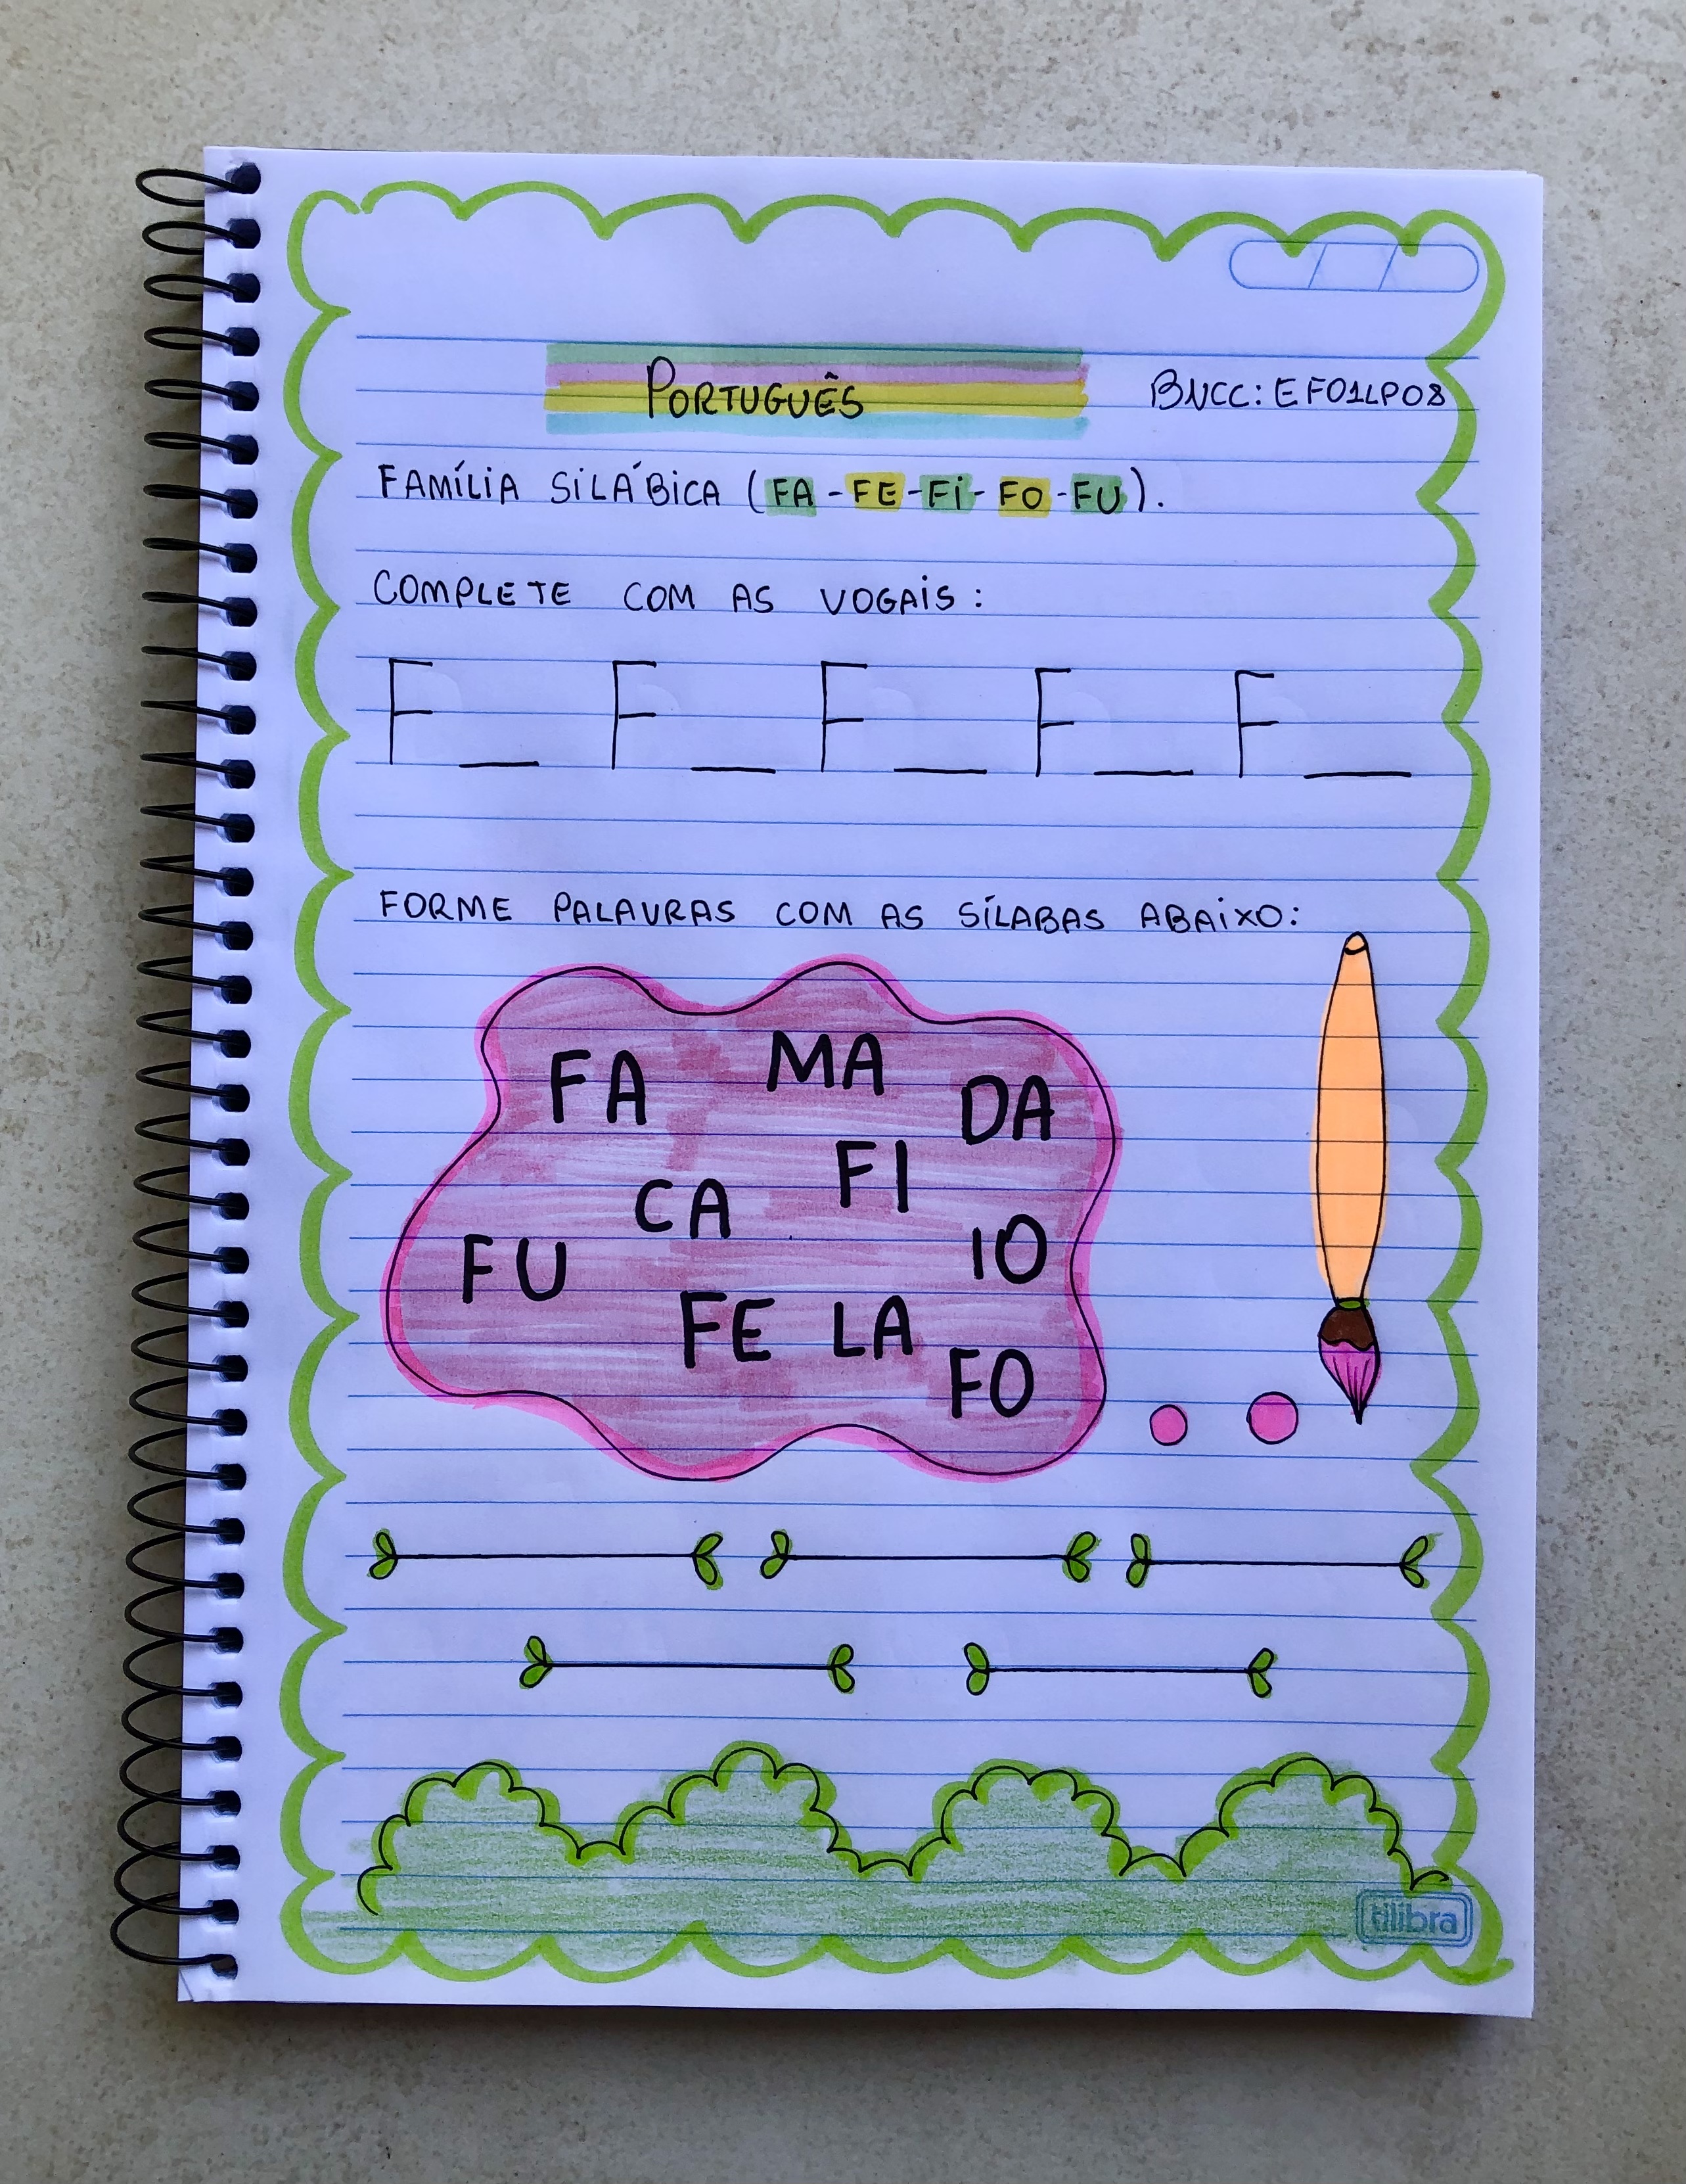 PORTUGUÊS BNCC: EF01LP08
FAMÍLIA SILÁBICA (FA-FE-FI-FO-FU).
COMPLETE COM AS VOGAIS:
F_ F_ F_ F_ F_
FORME PALAVRAS COM AS SÍLABAS ABAIXO:
FA MA DA
CA FI
FU IO
FE LA
FO
tilibra